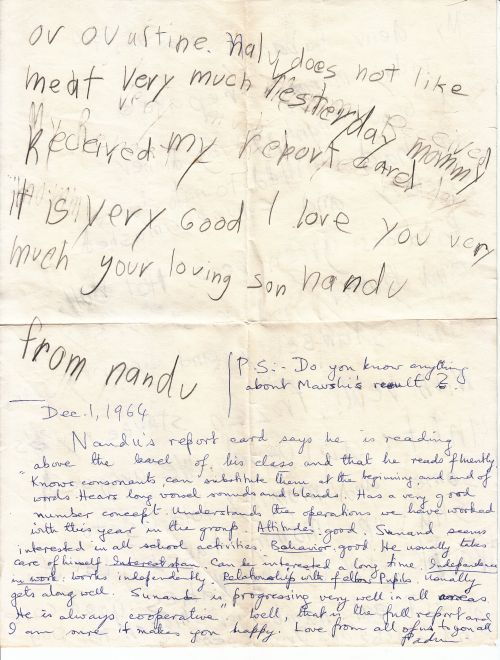 or ovaltine. Naly does not like
meat very much Yesterday mommy
Received my report card
it is very Good I love you very
much your loving son nandu
from nandu
P.S:- Do you know anything
about Mavshi's result ?
Dec. 1, 1964
Nandu's report card says he is reading
"above the level of his class and that he reads fluently
Knows consonants, can substitute them at the beginning and end of
words. Hears long vowel sounds and blends. Has a very good
number concept. Understands the operations we have worked
with this year in the group. Attitudes: good. Sunand seems
interested in all school activities. Behavior: good. He usually takes
care of himself. Interest span: Can be interested a long time. Independence
in work: works independently. Relationship with fellow Pupils: Usually
gets along well. Sunand is progressing very well in all areas
He is always cooperative" Well, that is the full report and
I am sure it makes you happy. Love from all of us to you all